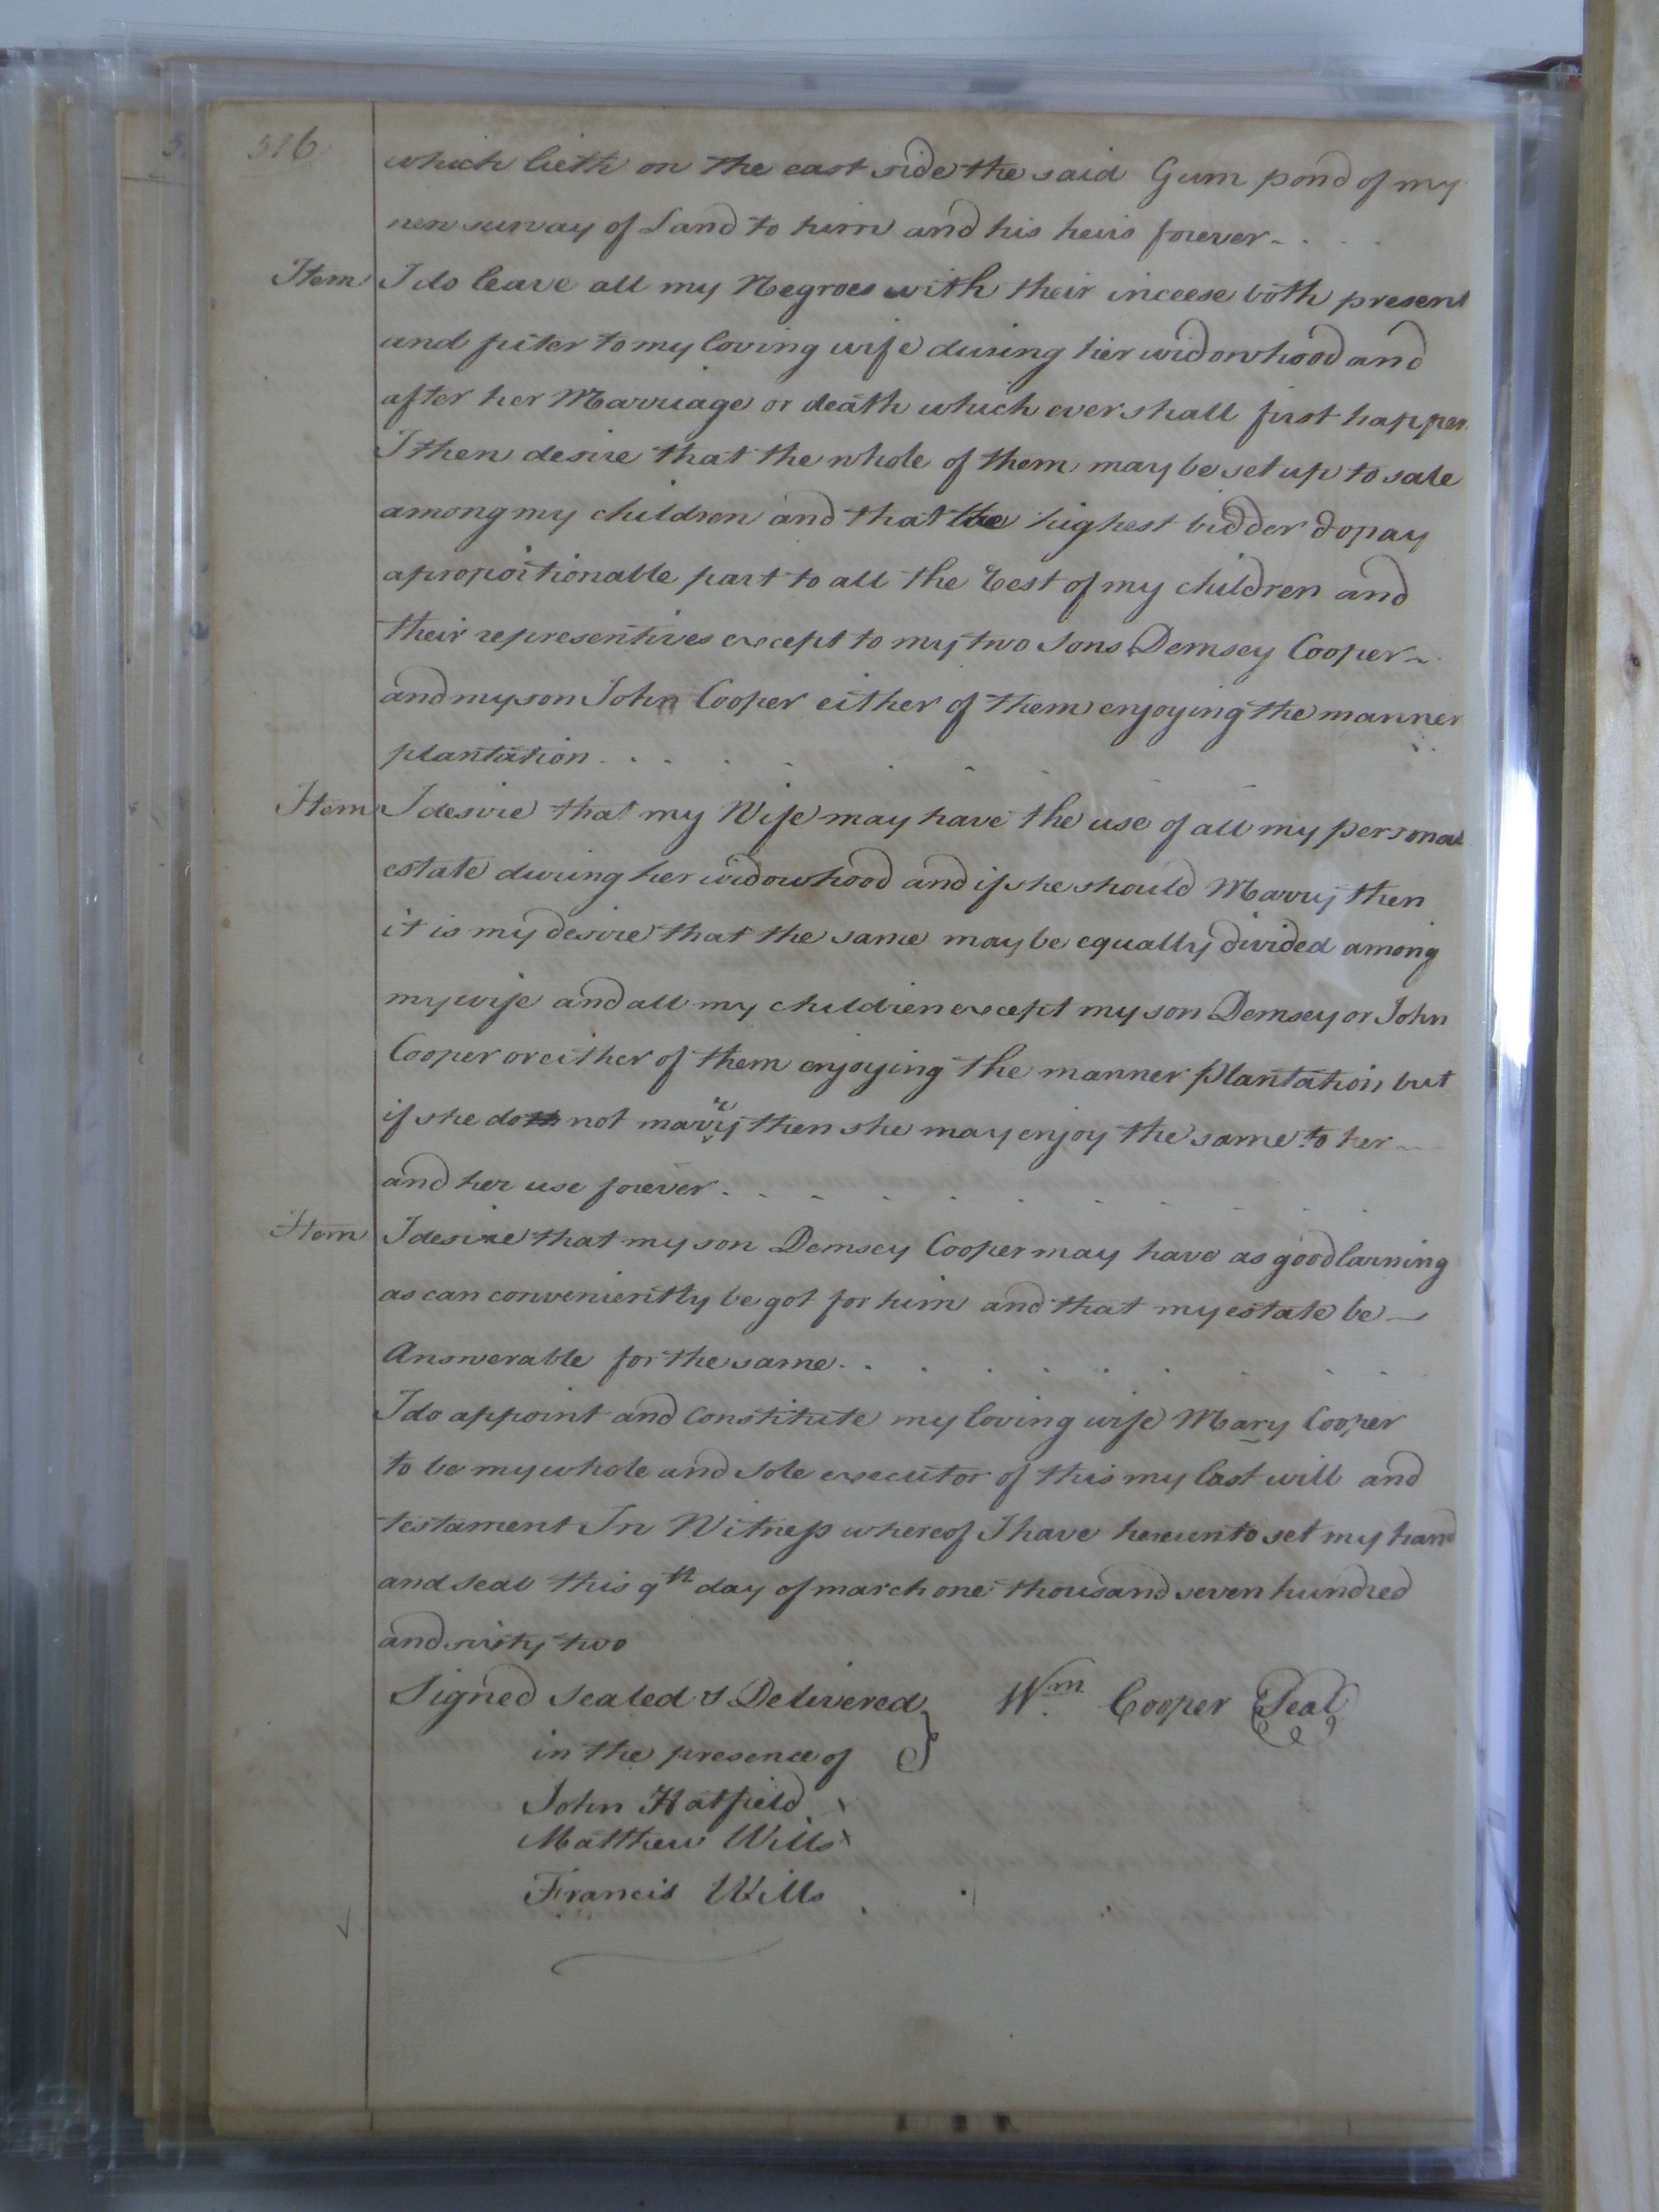 516
which lieth on the east side the said Gum pond of my
new survay of Land to him and his heirs forever
Item I do leave all my Negroes with their inceese both present
and futer to my loving wife during her widowhood and
after her Marriage or death which ever shall first happen
I then desire that the whole of them may be set up to sale
among my children and that the highest bidder do pay
apropoitionable part to all the Rest of my children and
their representives except to my two sons Demsey Cooper
and my son John Cooper either of them enjoying the manner
plantation
Item I desire that my Wife may have the use of all my personal
estate during her widowhood and if she should Marry then
it is my desire that the same may be equally divided among
my wife and all my children except my son Demsey or John
Cooper or either of them enjoying the manner plantation but
if she doth not marry then she may enjoy the same to her
and her use forever
Item I desire that my son Demsey Cooper may have as good larning
as can conveniently be got for him and that my estate be
Answerable for the same
I do appoint and Constitute my loving wife Mary Cooper
to be my whole and sole executor of this my last will and
testament In Witness whereof I have hereunto set my hand
and seal this 9th day of march one thousand seven hundred
and sixty two
Signed sealed & Delivered } Wm. Cooper Seal
in the presence of
John Hatfield
Matthew Wills
Francis Wills